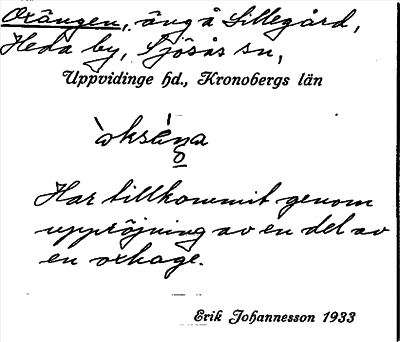 Oxängen, äng å Lillegård,
Heda by, Sjösås sn,
Uppvidinge hd., Kronobergs län
Har tillkommit genom
uppröjning av en del av
en oxhage.
Erik Johannesson 1933